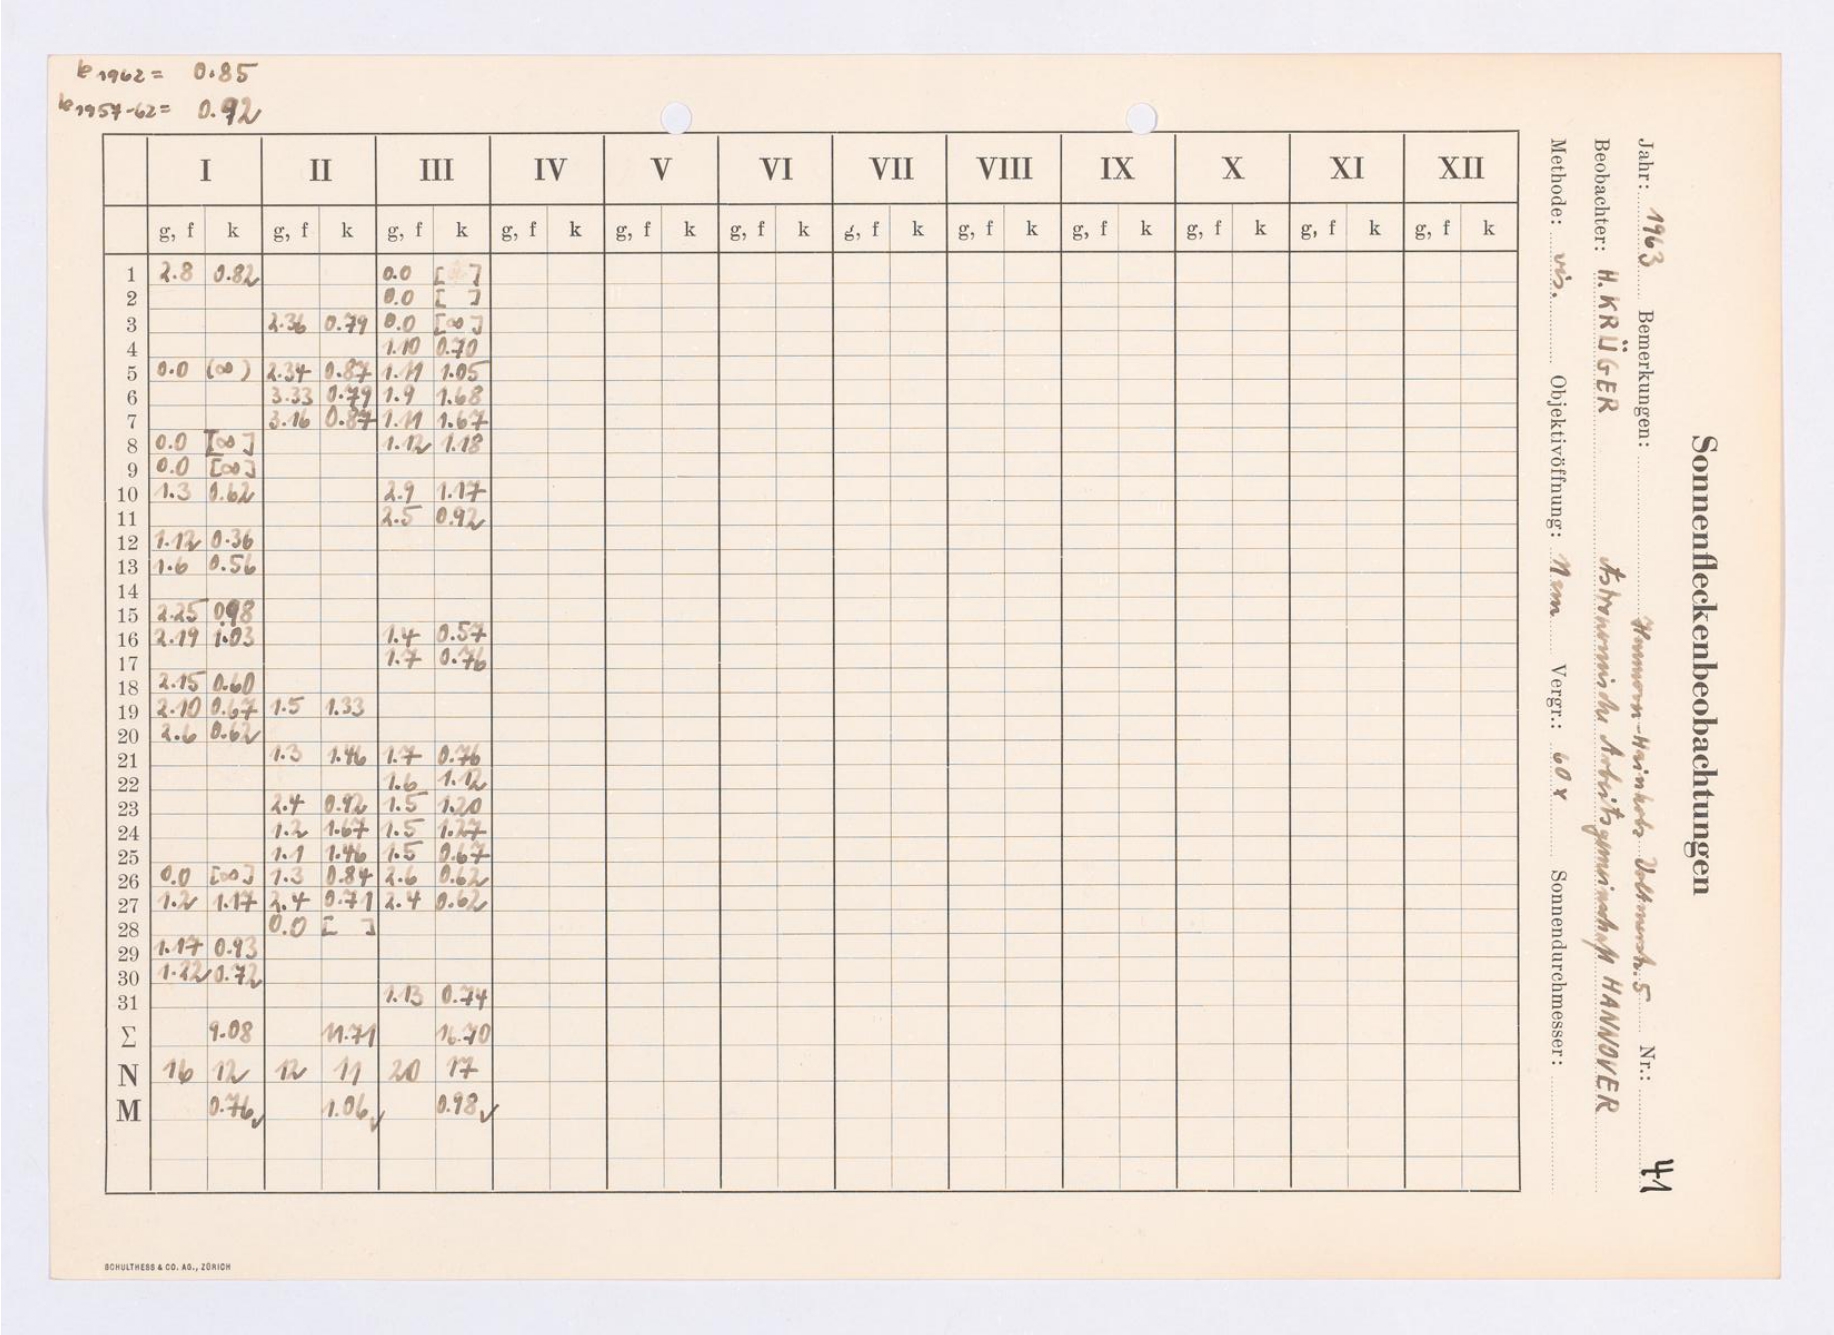 k 1962 = 0.85
k 1957-62 = 0.92
Sonnenfleckenbeobachtungen
Jahr: 1963 Bemerkungen: Nr.: 41
Beobachter: H. KRÜGER Astronomische Arbeitsgemeinschaft HANNOVER
Methode: vis. Objektivöffnung: 11 cm Vergr.: 60 x Sonnendurchmesser:
I II III IV V VI VII VIII IX X XI XII
g, f k g, f k g, f k g, f k g, f k g, f k g, f k g, f k g, f k g, f k g, f k g, f k
1 2.8 0.82 0.0 [ ]
2 0.0 [ ]
3 2.36 0.79 0.0 [∞]
4 1.10 0.70
5 0.0 (∞) 2.34 0.87 1.11 1.05
6 3.33 0.79 1.9 1.68
7 3.16 0.87 1.11 1.67
8 0.0 [∞] 1.12 1.18
9 0.0 [∞]
10 1.3 0.62 2.9 1.17
11 2.5 0.92
12 1.12 0.36
13 1.6 0.56
14
15 2.25 0.98
16 2.19 1.03 1.4 0.57
17 1.7 0.76
18 2.15 0.60
19 2.10 0.67 1.5 1.33
20 2.6 0.62
21 1.3 1.46 1.7 0.76
22 1.6 1.12
23 2.4 0.92 1.5 1.20
24 1.2 1.67 1.5 1.27
25 1.1 1.46 1.5 0.67
26 0.0 [∞] 1.3 0.84 2.6 0.62
27 1.2 1.17 2.4 0.71 2.4 0.62
28 0.0 [ ]
29 1.17 0.93
30 1.22 0.72
31 1.13 0.74
Σ 9.08 11.71 16.70
N 16 12 12 11 20 17
M 0.76 ✓ 1.06 ✓ 0.98 ✓
SCHULTHESS & CO. AG., ZÜRICH